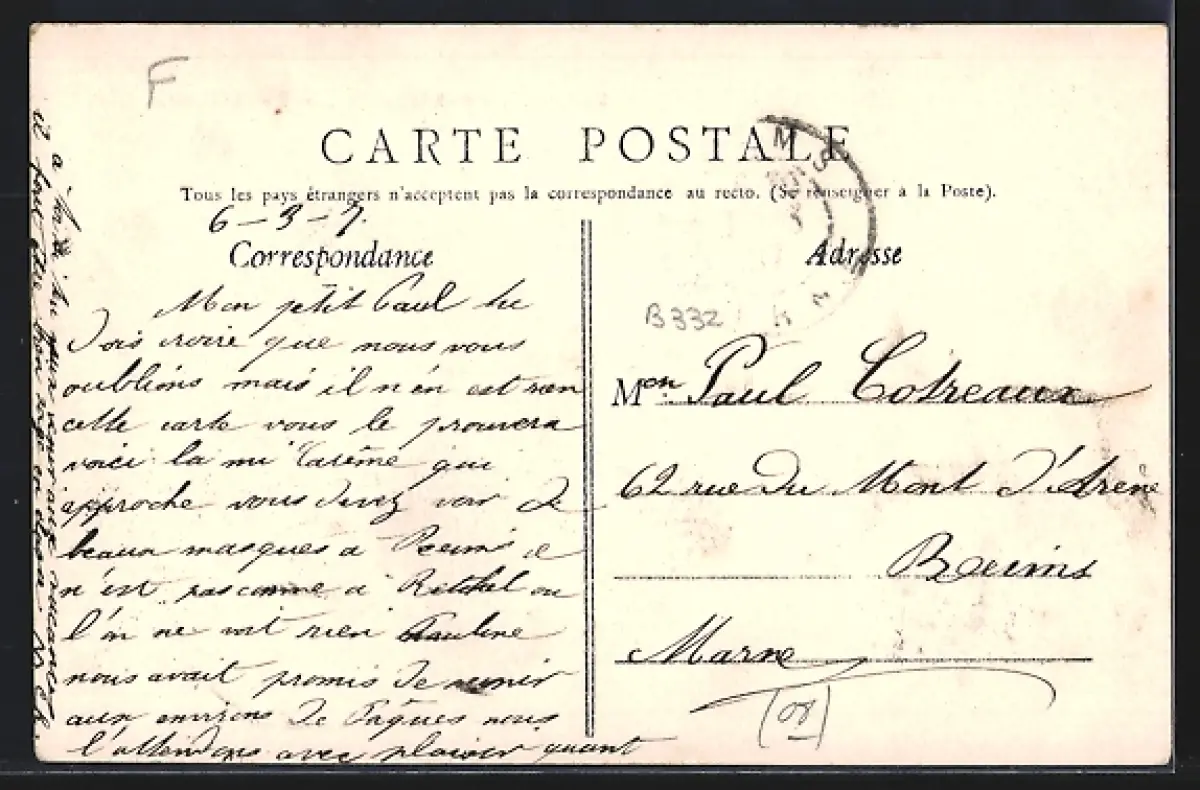 F
CARTE POSTALE
Tous les pays étrangers n'acceptent pas la correspondance au recto. (Se renseigner à la Poste).
6-3-7.
Correspondance
Mon petit Paul tu
dois croire que nous vous
oublions mais il n'en est rien
cette carte vous le prouvera
voici la mi Carême qui
approche vous devez voir de
beaux masques a Reims ce
n'est pas comme a Rethel ou
l'on ne voit rien Pauline
nous avait promis de venir
aux environs de Pâques nous
l'attendons avec plaisir quant
a toi tu pour vacances
il faut être bien sage
Adresse
B332
Mon. Paul Cotreaux
62 rue du Mont d'Arène
Reims
Marne
(08)